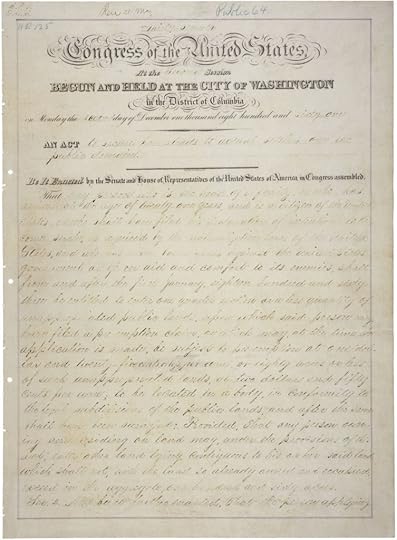 Public 64
HR. 125
Thirty-Seventh
Congress of the United States,
At the Second Session
BEGUN AND HELD AT THE CITY OF WASHINGTON
in the District of Columbia
on Monday the second day of December one thousand eight hundred and sixty-one
AN ACT to secure homesteads to actual settlers on the
public domain.
Be it Enacted by the Senate and House of Representatives of the United States of America in Congress assembled,
That any person who is the head of a family, or who has
arrived at the age of twenty-one years, and is a citizen of the United
States, or who shall have filed his declaration of intention to be-
come such, as required by the naturalization laws of the United
States, and who has never borne arms against the United States
government or given aid and comfort to its enemies, shall
from and after the first January, eighteen hundred and sixty
three be entitled to enter one quarter section or a less quantity of
unappropriated public lands, upon which said person may
have filed a preemption claim, or which may, at the time the
application is made, be subject to preemption at one dol-
lar and twenty-five cents, or less, per acre; or eighty acres or less
of such unappropriated lands, at two dollars and fifty
cents per acre, to be located in a body, in conformity to
the legal subdivisions of the public lands, and after the same
shall have been surveyed: Provided, That any person own-
ing and residing on land may, under the provisions of this
act, enter other land lying contiguous to his or her said land,
which shall not, with the land so already owned and occupied,
exceed in the aggregate one hundred and sixty acres.
Sec. 2. And be it further enacted, That the person applying